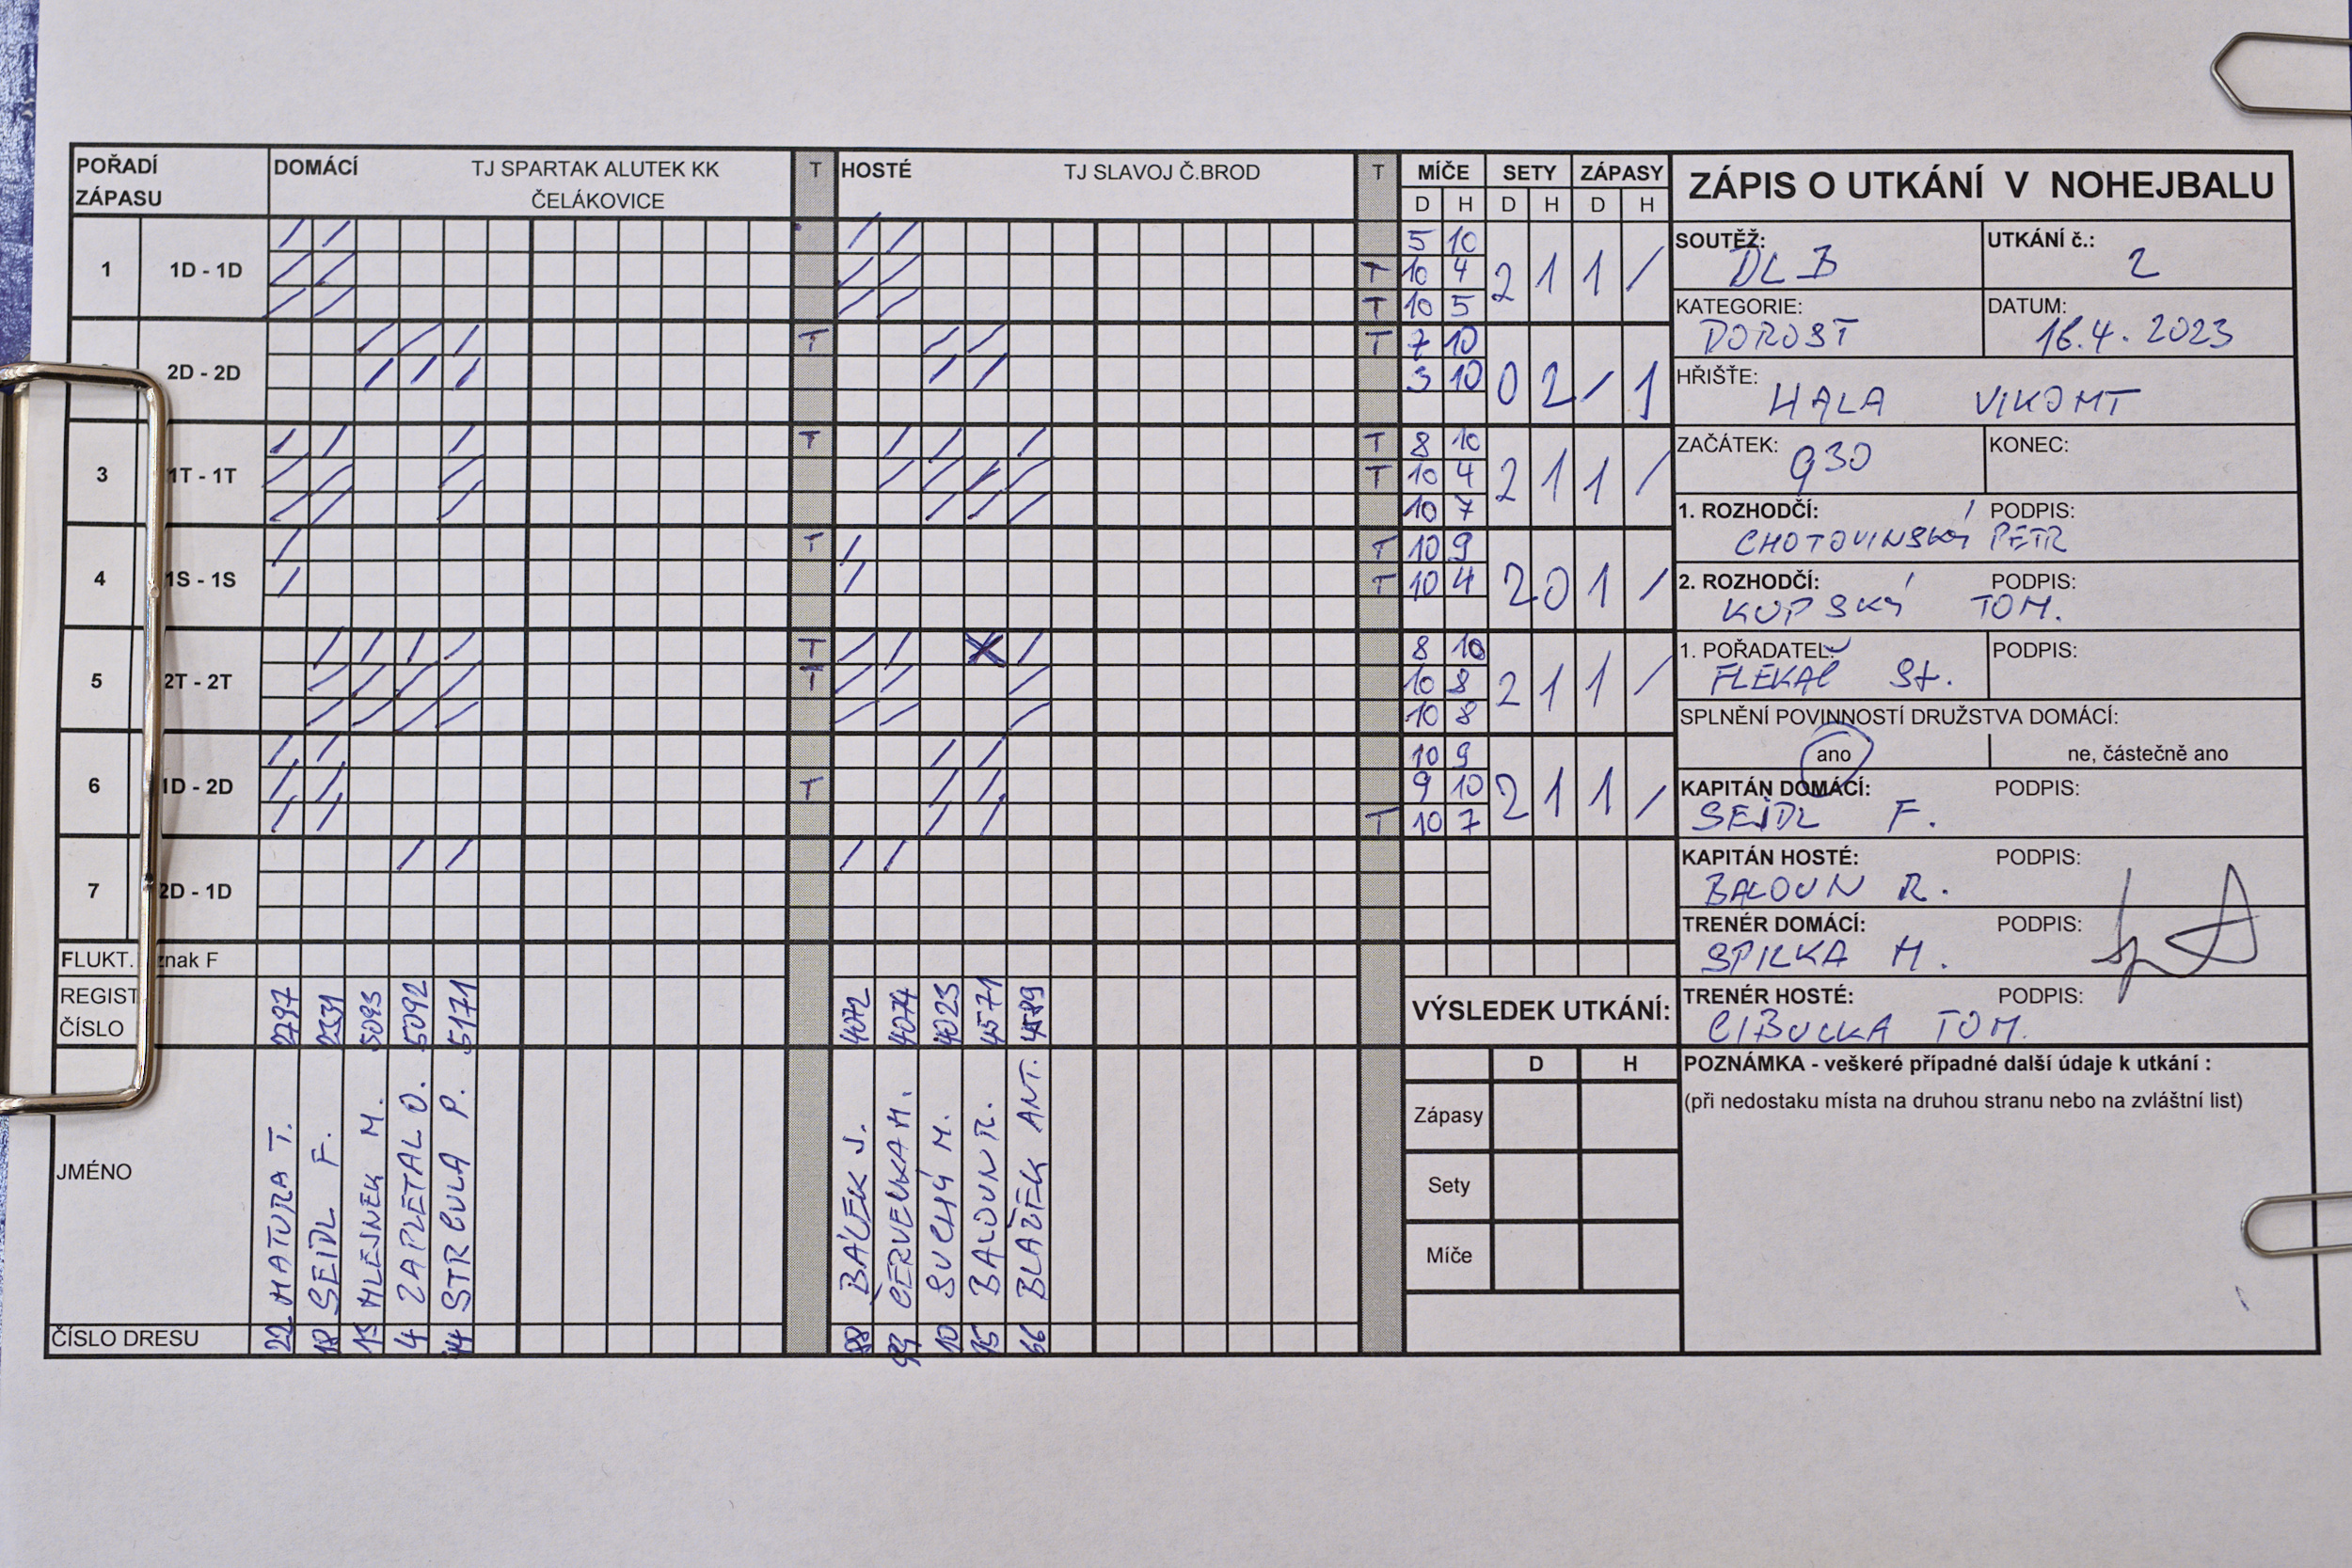 POŘADÍ ZÁPASU DOMÁCÍ TJ SPARTAK ALUTEK KK ČELÁKOVICE T HOSTÉ TJ SLAVOJ Č.BROD T MÍČE SETY ZÁPASY
D H D H D H
ZÁPIS O UTKÁNÍ V NOHEJBALU
1 1D - 1D
5 10
T 10 4 2 1 1 /
T 10 5
2D - 2D
T T 7 10
3 10 0 2 / 1
3 1T - 1T
T T 8 10
T 10 4 2 1 1 /
10 7
4 1S - 1S
T T 10 9
T 10 4 2 0 1 /
5 2T - 2T
T 8 10
T 10 8 2 1 1 /
10 8
6 1D - 2D
10 9
T 9 10 2 1 1 /
T 10 7
7 2D - 1D
FLUKT. znak F
REGIST ČÍSLO
2797 2331 5093 5092 5171
4072 4074 4023 4571 4589
JMÉNO
MATURA T.
SEIDL F.
MLEJNEK M.
ZAPLETAL O.
STRCULA P.
BÁLEK J.
ČERVENKA M.
SUCHÝ M.
BALOUN R.
BLAŽEK ANT.
ČÍSLO DRESU
22 18 13 4 14
88 99 10 15 66
SOUTĚŽ: DL B
UTKÁNÍ č.: 2
KATEGORIE: DOROST
DATUM: 16.4.2023
HŘIŠTĚ: HALA VIKOMT
ZAČÁTEK: 930
KONEC:
1. ROZHODČÍ: PODPIS:
CHOTOVINSKÝ PETR
2. ROZHODČÍ: PODPIS:
KUPSKÝ TOM.
1. POŘADATEL: PODPIS:
FLEKAČ St.
SPLNĚNÍ POVINNOSTÍ DRUŽSTVA DOMÁCÍ:
ano ne, částečně ano
KAPITÁN DOMÁCÍ: PODPIS:
SEIDL F.
KAPITÁN HOSTÉ: PODPIS:
BALOUN R.
TRENÉR DOMÁCÍ: PODPIS:
SPILKA M.
TRENÉR HOSTÉ: PODPIS:
CIBULKA TOM.
VÝSLEDEK UTKÁNÍ:
D H
Zápasy
Sety
Míče
POZNÁMKA - veškeré případné další údaje k utkání :
(při nedostaku místa na druhou stranu nebo na zvláštní list)